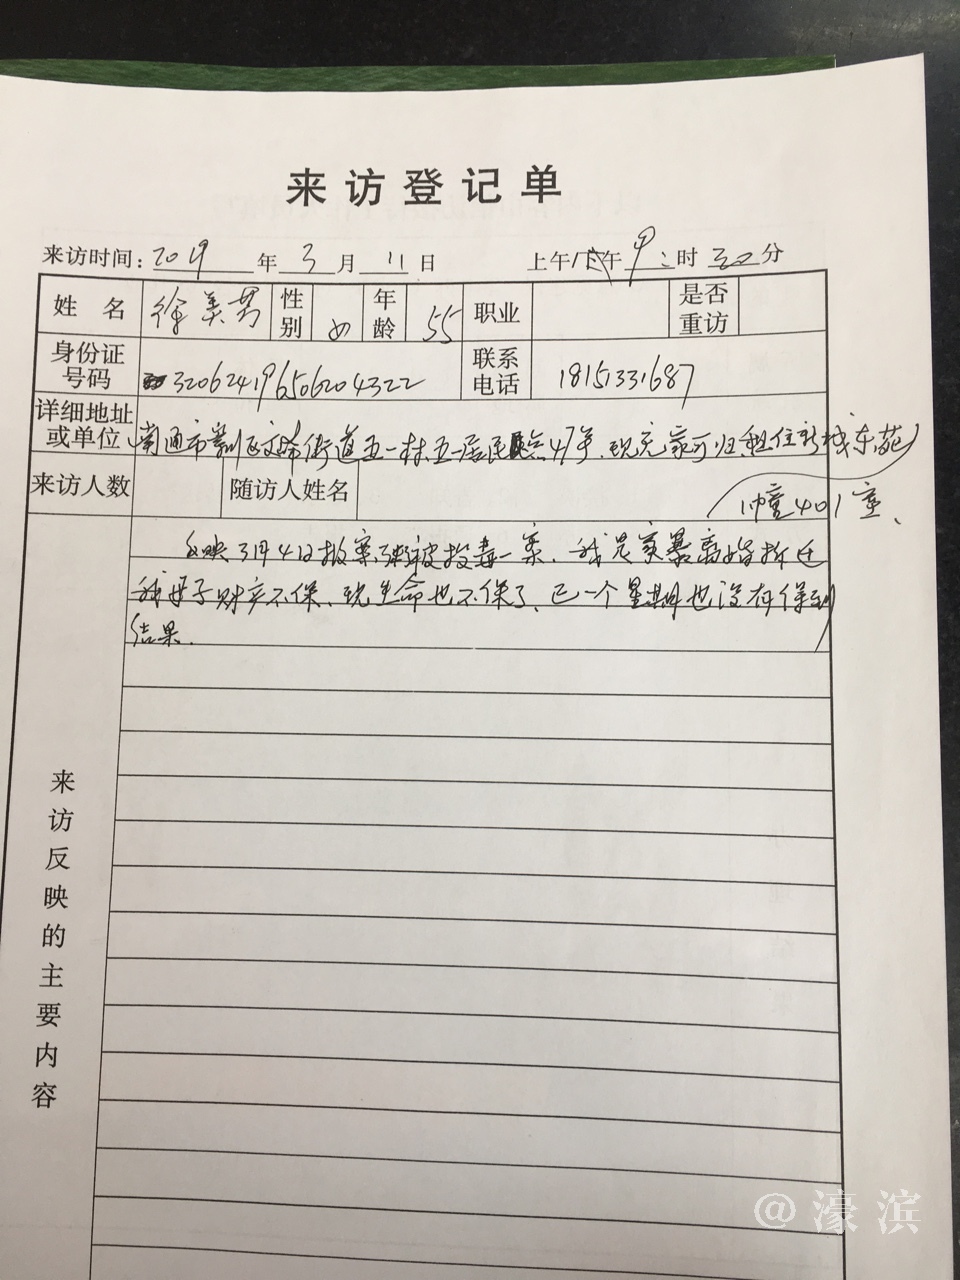 来访登记单
来访时间：2019年3月11日 上午 时30分
姓名 徐美芳 性别 女 年龄 55 职业 是否重访
身份证号码 320624196506204322 联系电话 18151331687
详细地址或单位 南通市崇川区文峰街道五一村五一居民点47号，现无家可归，租住新城东苑
幢401室、
来访人数 随访人姓名
来访反映的主要内容
反映3月4日报案 被投毒一案，我是家暴离婚拆迁
我母子财产不保，现生命也不保了，已一个星期也没有得到
结果.
@濠滨